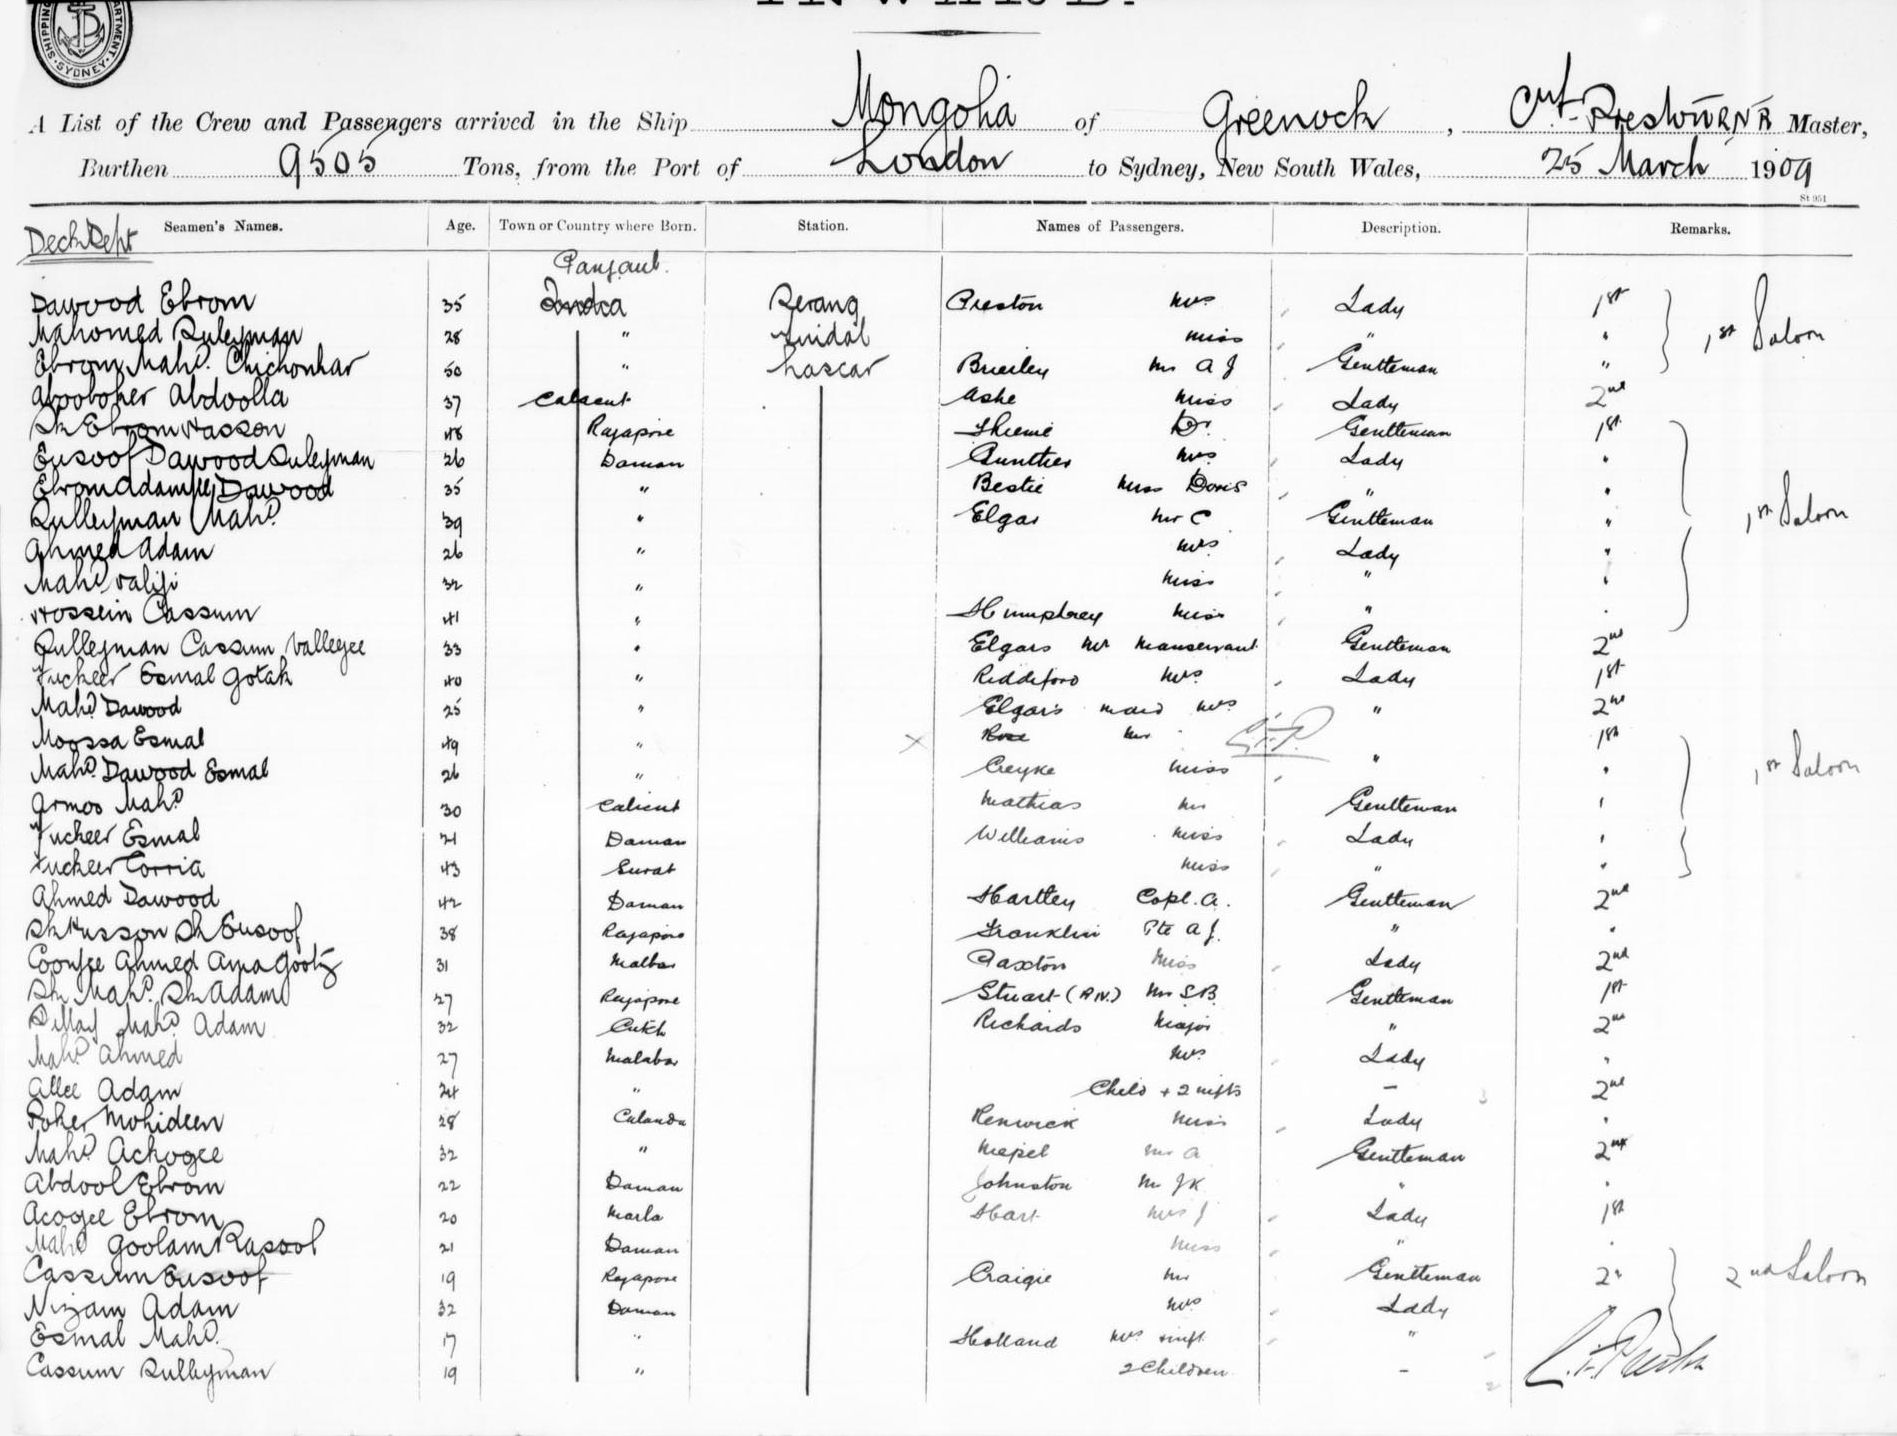 SHIPPING DEPARTMENT SYDNEY
INWARD.
A List of the Crew and Passengers arrived in the Ship Mongolia of Greenock, Preston RNR Master,
Burthen 9505 Tons, from the Port of London to Sydney, New South Wales, 25 March 1909
St 951
Seamen's Names. Age. Town or Country where Born. Station. Names of Passengers. Description. Remarks.
Deck Dept
Panjaub.
Dawood Ebrom 35 India Serang Preston Mrs Lady 1st
Mahomed Suleyman 28 " Tindal Miss " " 1st Saloon
Ebrom Mahd. Chichonkar 50 " Lascar Brierley Mr A J Gentleman "
Aboobaker Abdoolla 37 Calicut Ashe Miss Lady 2nd
Sk Ebrom Hasson 48 Rajapore Thieme Dr. Gentleman 1st
Eusoof Dawood Suleyman 26 Daman Gunther Mrs Lady "
Ebrom Adamjee Dawood 35 " Bestie Miss Doris " "
Sulleyman Mahd. 39 " Elgar Mr C Gentleman " 1st Saloon
Ahmed Adam 26 " Mrs Lady "
Mahd. Valiji 32 " Miss " "
Hossein Cassum 41 " Humphrey Miss " "
Sulleyman Cassum Valleejee 33 " Elgars Mr Manservant Gentleman 2nd
Fucheer Esmal Gotak 40 " Riddiford Mrs Lady 1st
Mahd. Dawood 25 " Elgar's maid Mrs " 2nd
Moossa Esmal 49 " × Rose Mr C.F.P. 1st
Mahd. Dawood Esmal 26 " Creyke Miss " " 1st Saloon
Armoo Mahd. 30 Calicut Mathias Mr Gentleman "
Fucheer Esmal 21 Daman Williams Miss Lady "
Fucheer Corria 43 Surat Miss " "
Ahmed Dawood 42 Daman Hartley Copl. A. Gentleman 2nd
Sk Husson Sk Eusoof 38 Rajapore Franklin Pte A J. " "
Coonjee Ahmed 31 Malbar Paxton Miss Lady 2nd
Sk Mahd. Sk Adam 27 Rajapore Stuart (R.N.) Mr S.B. Gentleman 1st
Mahd. Adam 32 Cutch Richards Major " 2nd
Mahd. Ahmed 27 Malabar Mrs Lady "
Allee Adam 24 " Child + 2 infts – 2nd
Poker Mohideen 28 Renwick Miss Lady "
Mahd. Achogee 32 " Mepel Mr A Gentleman 2nd
Abdool Ebrom 22 Daman Johnston Mr J K " "
Acogee Ebrom 20 Marla Hart Mrs J Lady 1st
Mahd Goolam Rasool 21 Daman Miss " "
Cassum Eusoof 19 Rajapore Craigie Mr Gentleman 2nd 2nd Saloon
Nizam Adam 32 Daman Mrs Lady
Esmal Mahd. 17 " Holland Mrs + inft "
Cassum Sulleyman 19 " 2 Children –